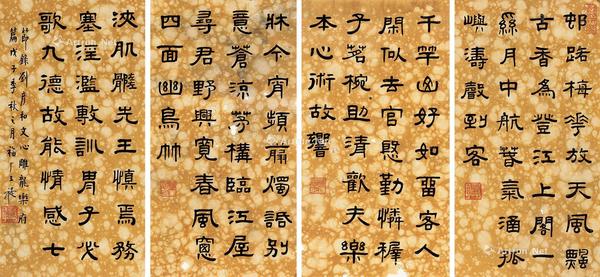 邨路梅花放天風飄
古香為登江上閣一
繫月中航暮氣涵孤
嶼濤聲到客
千竿山好如留客人
閑似去官慇勤憐稺
子茗椀助清歡夫樂
本心術故響
牀今宵頻翦燭話別
意蒼涼茅構臨江屋
尋君野興寬春風窗
四面幽鳥竹
浹肌髓先王慎焉務
塞淫濫敷訓冑子必
歌九德故能情感七
節錄劉彥和文心雕龍樂府
篇戊子季秋之月福厂王禔